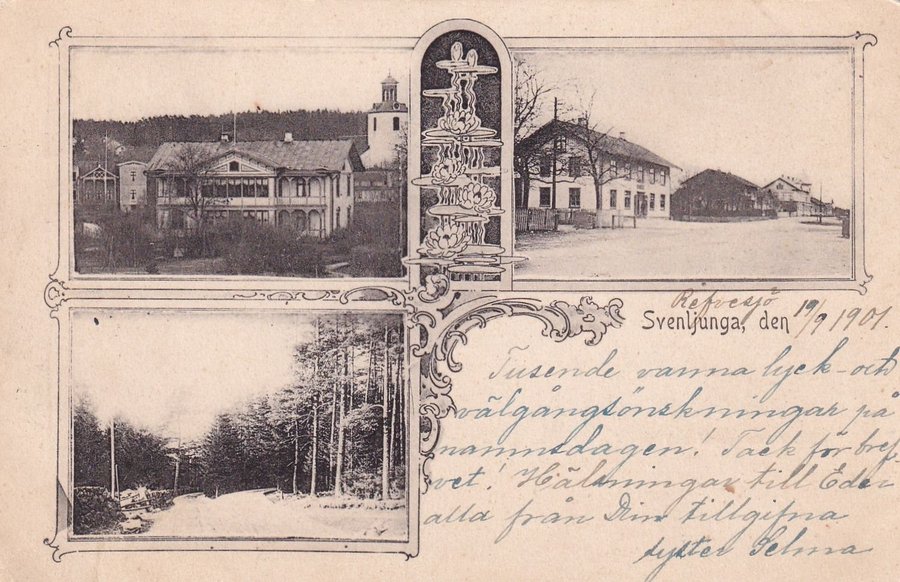 Refvesjö
Svenljunga, den 19/9 1901.
Tusende varma lyck- och
välgångsönskningar på
namnsdagen! Tack för bref-
vet! Hälsningar till Eder
alla från Din tillgifna
syster Selma